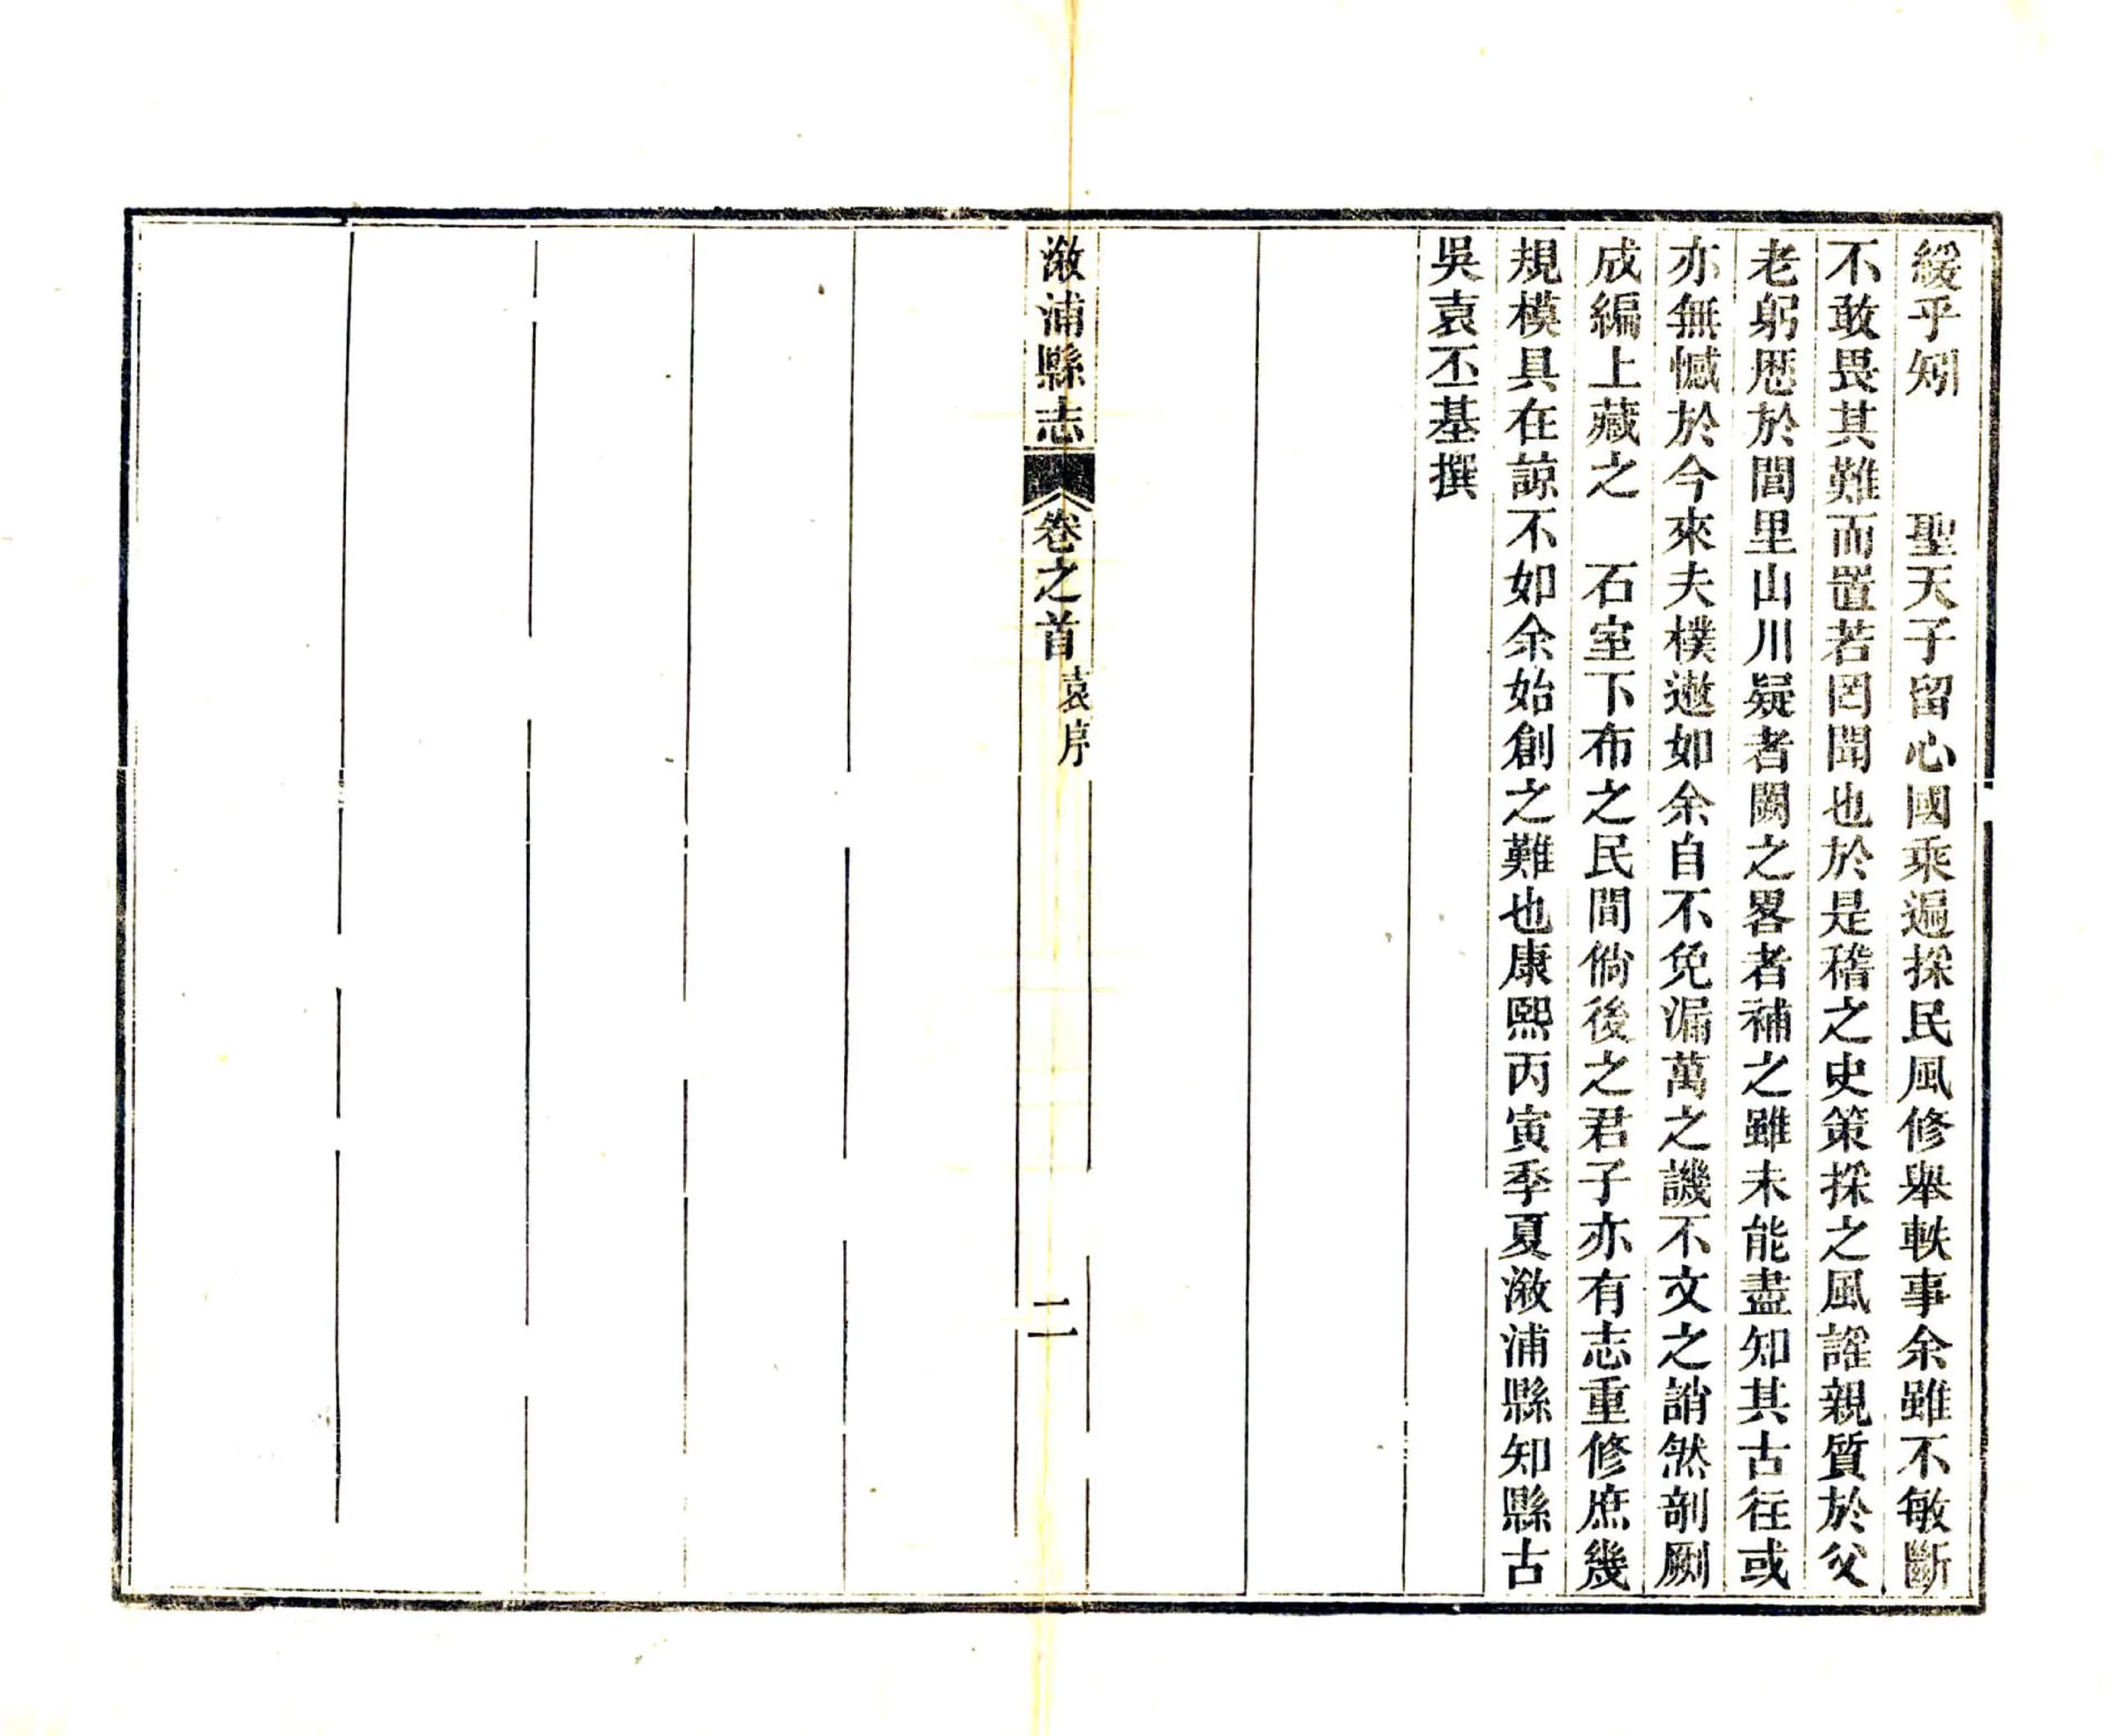 緩乎矧　　聖天子留心國乘遍採民風修舉軼事余雖不敏斷
不敢畏其難而置若罔聞也於是稽之史策採之風謠親質於父
老躬厯於閭里山川疑者闕之畧者補之雖未能盡知其古往或
亦無憾於今來夫樸遫如余自不免漏萬之譏不文之誚然剞劂
成編上藏之　石室下布之民間倘後之君子亦有志重修庶幾
規模具在諒不如余始創之難也康熙丙寅季夏漵浦縣知縣古
吳袁丕基撰
漵浦縣志　卷之首　袁序　二